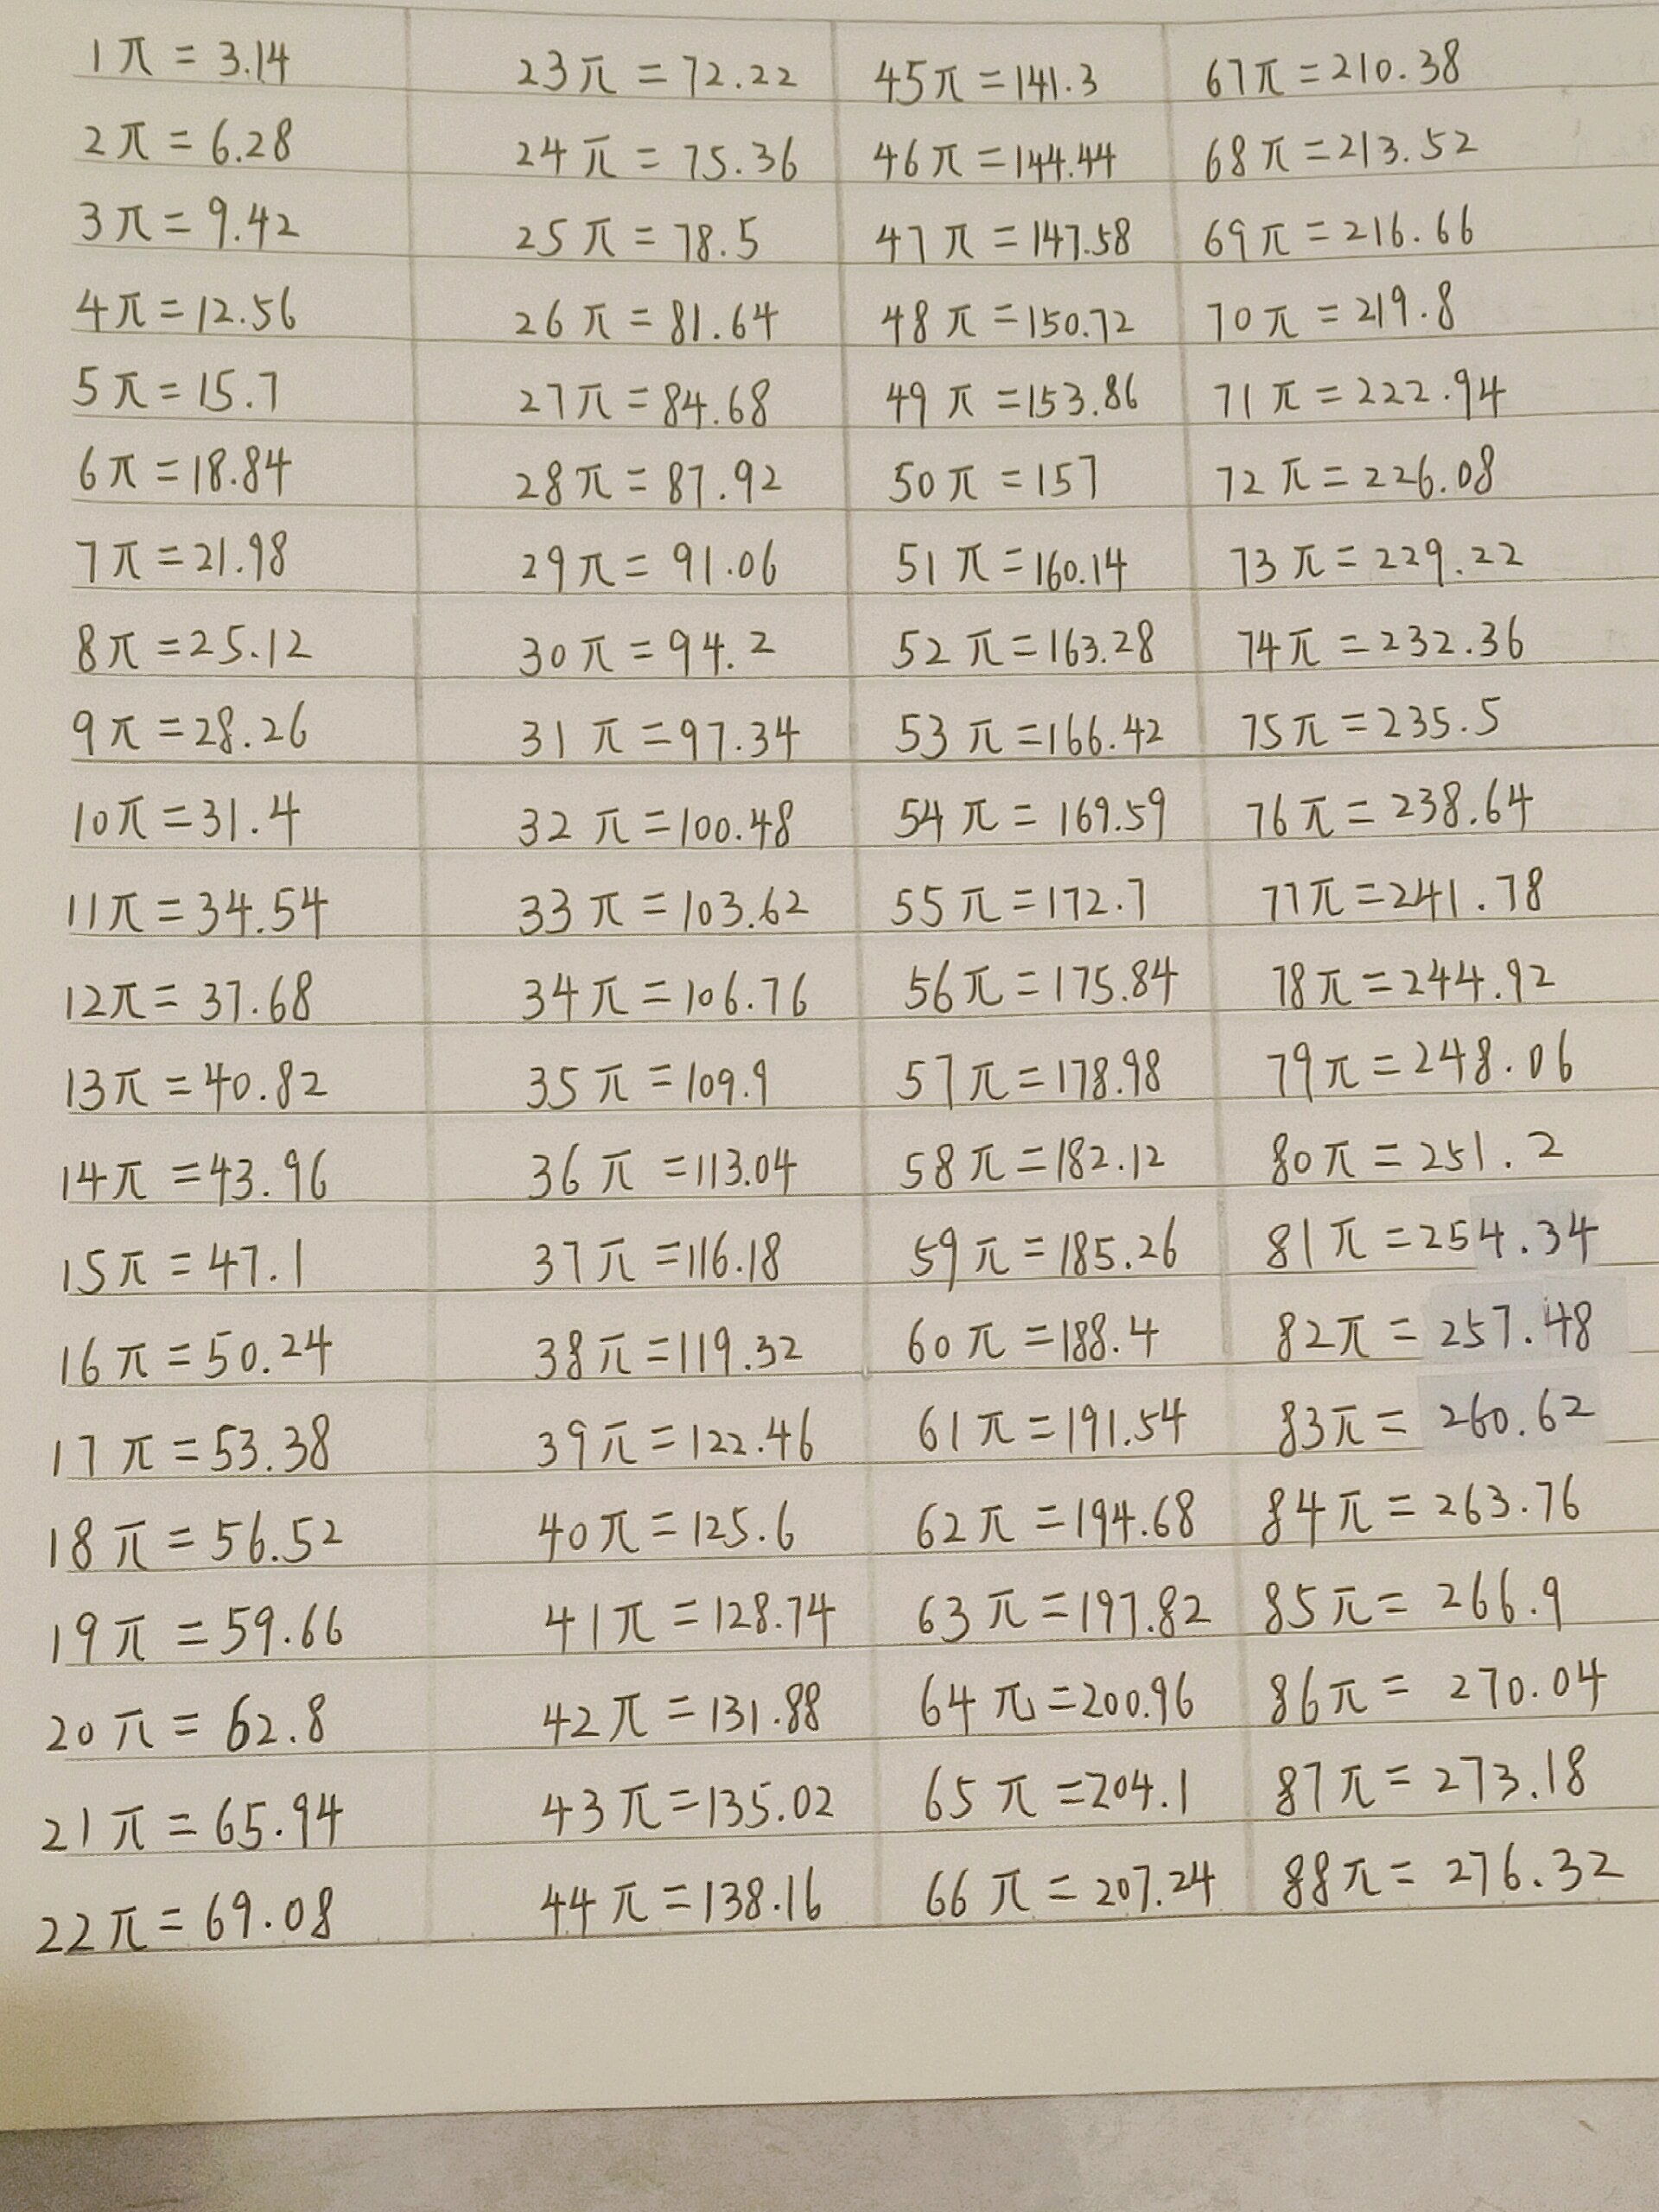 1π = 3.14
2π = 6.28
3π = 9.42
4π = 12.56
5π = 15.7
6π = 18.84
7π = 21.98
8π = 25.12
9π = 28.26
10π = 31.4
11π = 34.54
12π = 37.68
13π = 40.82
14π = 43.96
15π = 47.1
16π = 50.24
17π = 53.38
18π = 56.52
19π = 59.66
20π = 62.8
21π = 65.94
22π = 69.08
23π = 72.22
24π = 75.36
25π = 78.5
26π = 81.64
27π = 84.68
28π = 87.92
29π = 91.06
30π = 94.2
31π = 97.34
32π = 100.48
33π = 103.62
34π = 106.76
35π = 109.9
36π = 113.04
37π = 116.18
38π = 119.32
39π = 122.46
40π = 125.6
41π = 128.74
42π = 131.88
43π = 135.02
44π = 138.16
45π = 141.3
46π = 144.44
47π = 147.58
48π = 150.72
49π = 153.86
50π = 157
51π = 160.14
52π = 163.28
53π = 166.42
54π = 169.59
55π = 172.7
56π = 175.84
57π = 178.98
58π = 182.12
59π = 185.26
60π = 188.4
61π = 191.54
62π = 194.68
63π = 197.82
64π = 200.96
65π = 204.1
66π = 207.24
67π = 210.38
68π = 213.52
69π = 216.66
70π = 219.8
71π = 222.94
72π = 226.08
73π = 229.22
74π = 232.36
75π = 235.5
76π = 238.64
77π = 241.78
78π = 244.92
79π = 248.06
80π = 251.2
81π = 254.34
82π = 257.48
83π = 260.62
84π = 263.76
85π = 266.9
86π = 270.04
87π = 273.18
88π = 276.32